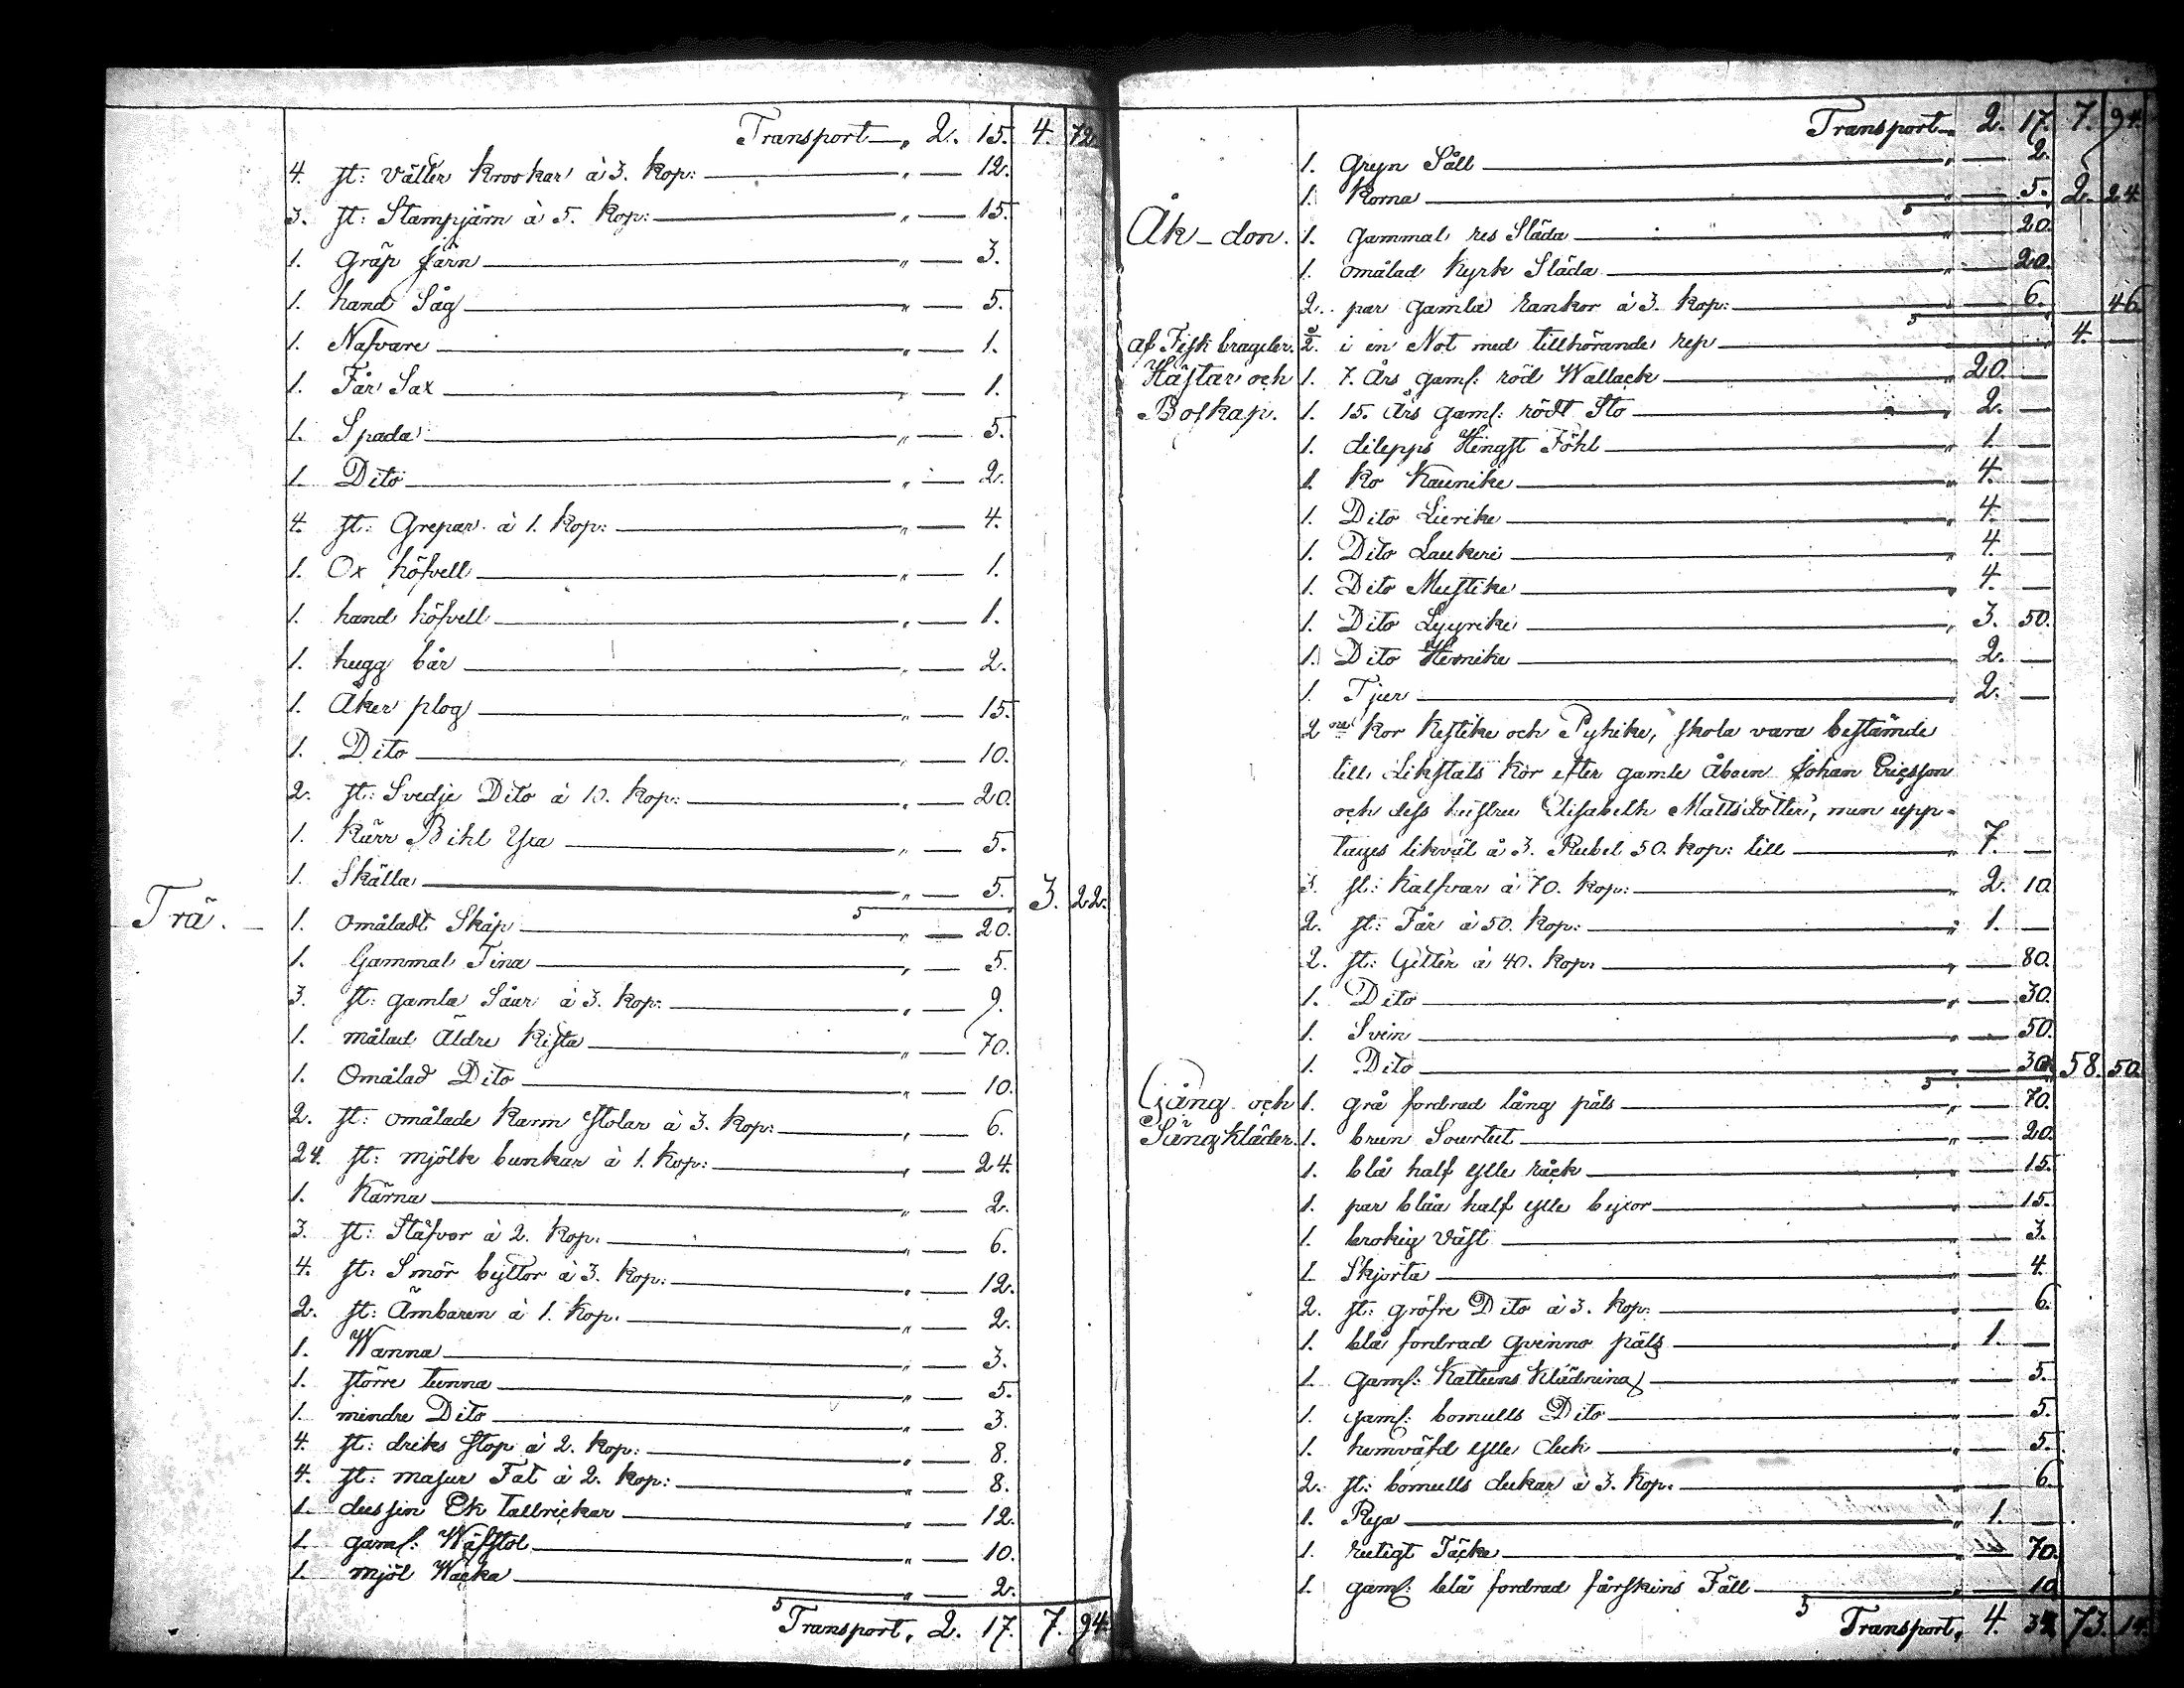 Transport „ 2. 15. 4. 72.
4. st: välter krookar à 3. kop: „ — 12.
3. st: Stampjärn à 5. kop: „ — 15.
1. gräp järn „ — 3.
1. hand Såg „ — 5.
1. Nafvare „ — 1.
1. Får Sax „ — 1.
1. Spada „ — 5.
1. Dito „ — 2.
4. st: Grepar à 1. kop: „ — 4.
1. Ox höfvell „ — 1.
1. hand höfvell „ — 1.
1. hugg bår „ — 2.
1. Åker plog „ — 15.
1. Dito „ — 10.
2. st: Svedje Dito à 10. kop: „ — 20.
1. kärr Bihl Yxa „ — 5.
1. Skälla „ — 5. 3. 22.
Trä. 1. omåladt Skåp „ — 20.
1. Gammal Tina „ — 5.
3. st: gamla Såar à 3. kop: „ — 9.
1. målad Äldre kista „ — 70.
1. Omålad Dito „ — 10.
2. st: omålade karm stolar à 3. kop: „ — 6.
24. st: mjölk bunkar à 1. kop: „ — 24.
1. kärna „ — 2.
3. st: Stäfvor à 2. kop. „ — 6.
4. st: Smör byttor à 3. kop: „ — 12.
2. st: Ämbaren à 1. kop. „ — 2.
1. Wanna „ — 3.
1. större tunna „ — 5.
1. mindre Dito „ — 3.
4. st: driks stop à 2. kop: „ — 8.
4. st: masur Fat à 2. kop: „ — 8.
1. dussin Ek tallrickar „ — 12.
1. gaml: Wäfstol „ — 10.
1. mjöl Wacka „ — 2.
5 Transport „ 2. 17. 7. 94.
Transport „ 2. 17. 7. 94.
1. gryn Såll „ — 2.
1. korna „ — 5. 2. 24.
Åk-don. 1. gammal res Släda „ — 20.
1. omålad kyrk Släda „ — 20.
2. par gamla rankor à 3. kop: „ — 6. 46.
af Fisk bragder. i en Not med tillhörande rep 4. —
Hästar och 1. 7. Års gaml: röd Wallack „ 20. —
Boskap. 1. 15. Års gaml: rödt Sto „ 2. —
1. dilepps Hingst Föhl „ 1. —
1. ko Kaunike „ 4. —
1. Dito Lierike „ 4. —
1. Dito Laukeri „ 4. —
1. Dito Mustike „ 4. —
1. Dito Lyyrike „ 3. 50.
1. Dito Hernike „ 2. —
1. Tjur „ 2. —
2ne kor Kestike och Pyhike, skola vara bestämde
till Likstals kor efter gamle åboen Johan Ericsson
och dess hustru Elisabeth Mattsdotter, men upp-
tages likväl à 3. Rubel 50. kop: till „ 7. —
3. st: kalfvar à 70. kop: „ 2. 10.
2. st: Får à 50. kop: „ 1. —
2. st: Getter à 40. kop: „ — 80.
1. Dito „ — 30.
1. Svin „ — 50.
1. Dito „ — 30. 58. 50.
Gång och 1. grå fordrad lång päls „ — 70.
Sängkläder. 1. brun Sourtut „ — 20.
1. blå half ylle råck „ — 15.
1. par blåa half ylle byxor „ — 15.
1. brokig väst „ — 3.
1. Skjorta „ — 4.
2. st: gröfre Dito à 3. kop: „ — 6.
1. blå fordrad qvinno päls „ 1. —
1. gaml: Kattuns Klädning „ — 5.
1. gaml: bomulls Dito „ — 5.
1. hemväfd ylle duk „ — 5.
2. st: bomulls dukar à 3. kop. „ — 6.
1. Rya „ 1. —
1. rutigt Täcke „ — 70.
1. gaml: blå fordrad fårskins Fäll „ — 10.
5 Transport „ 4. 34. 73. 14.